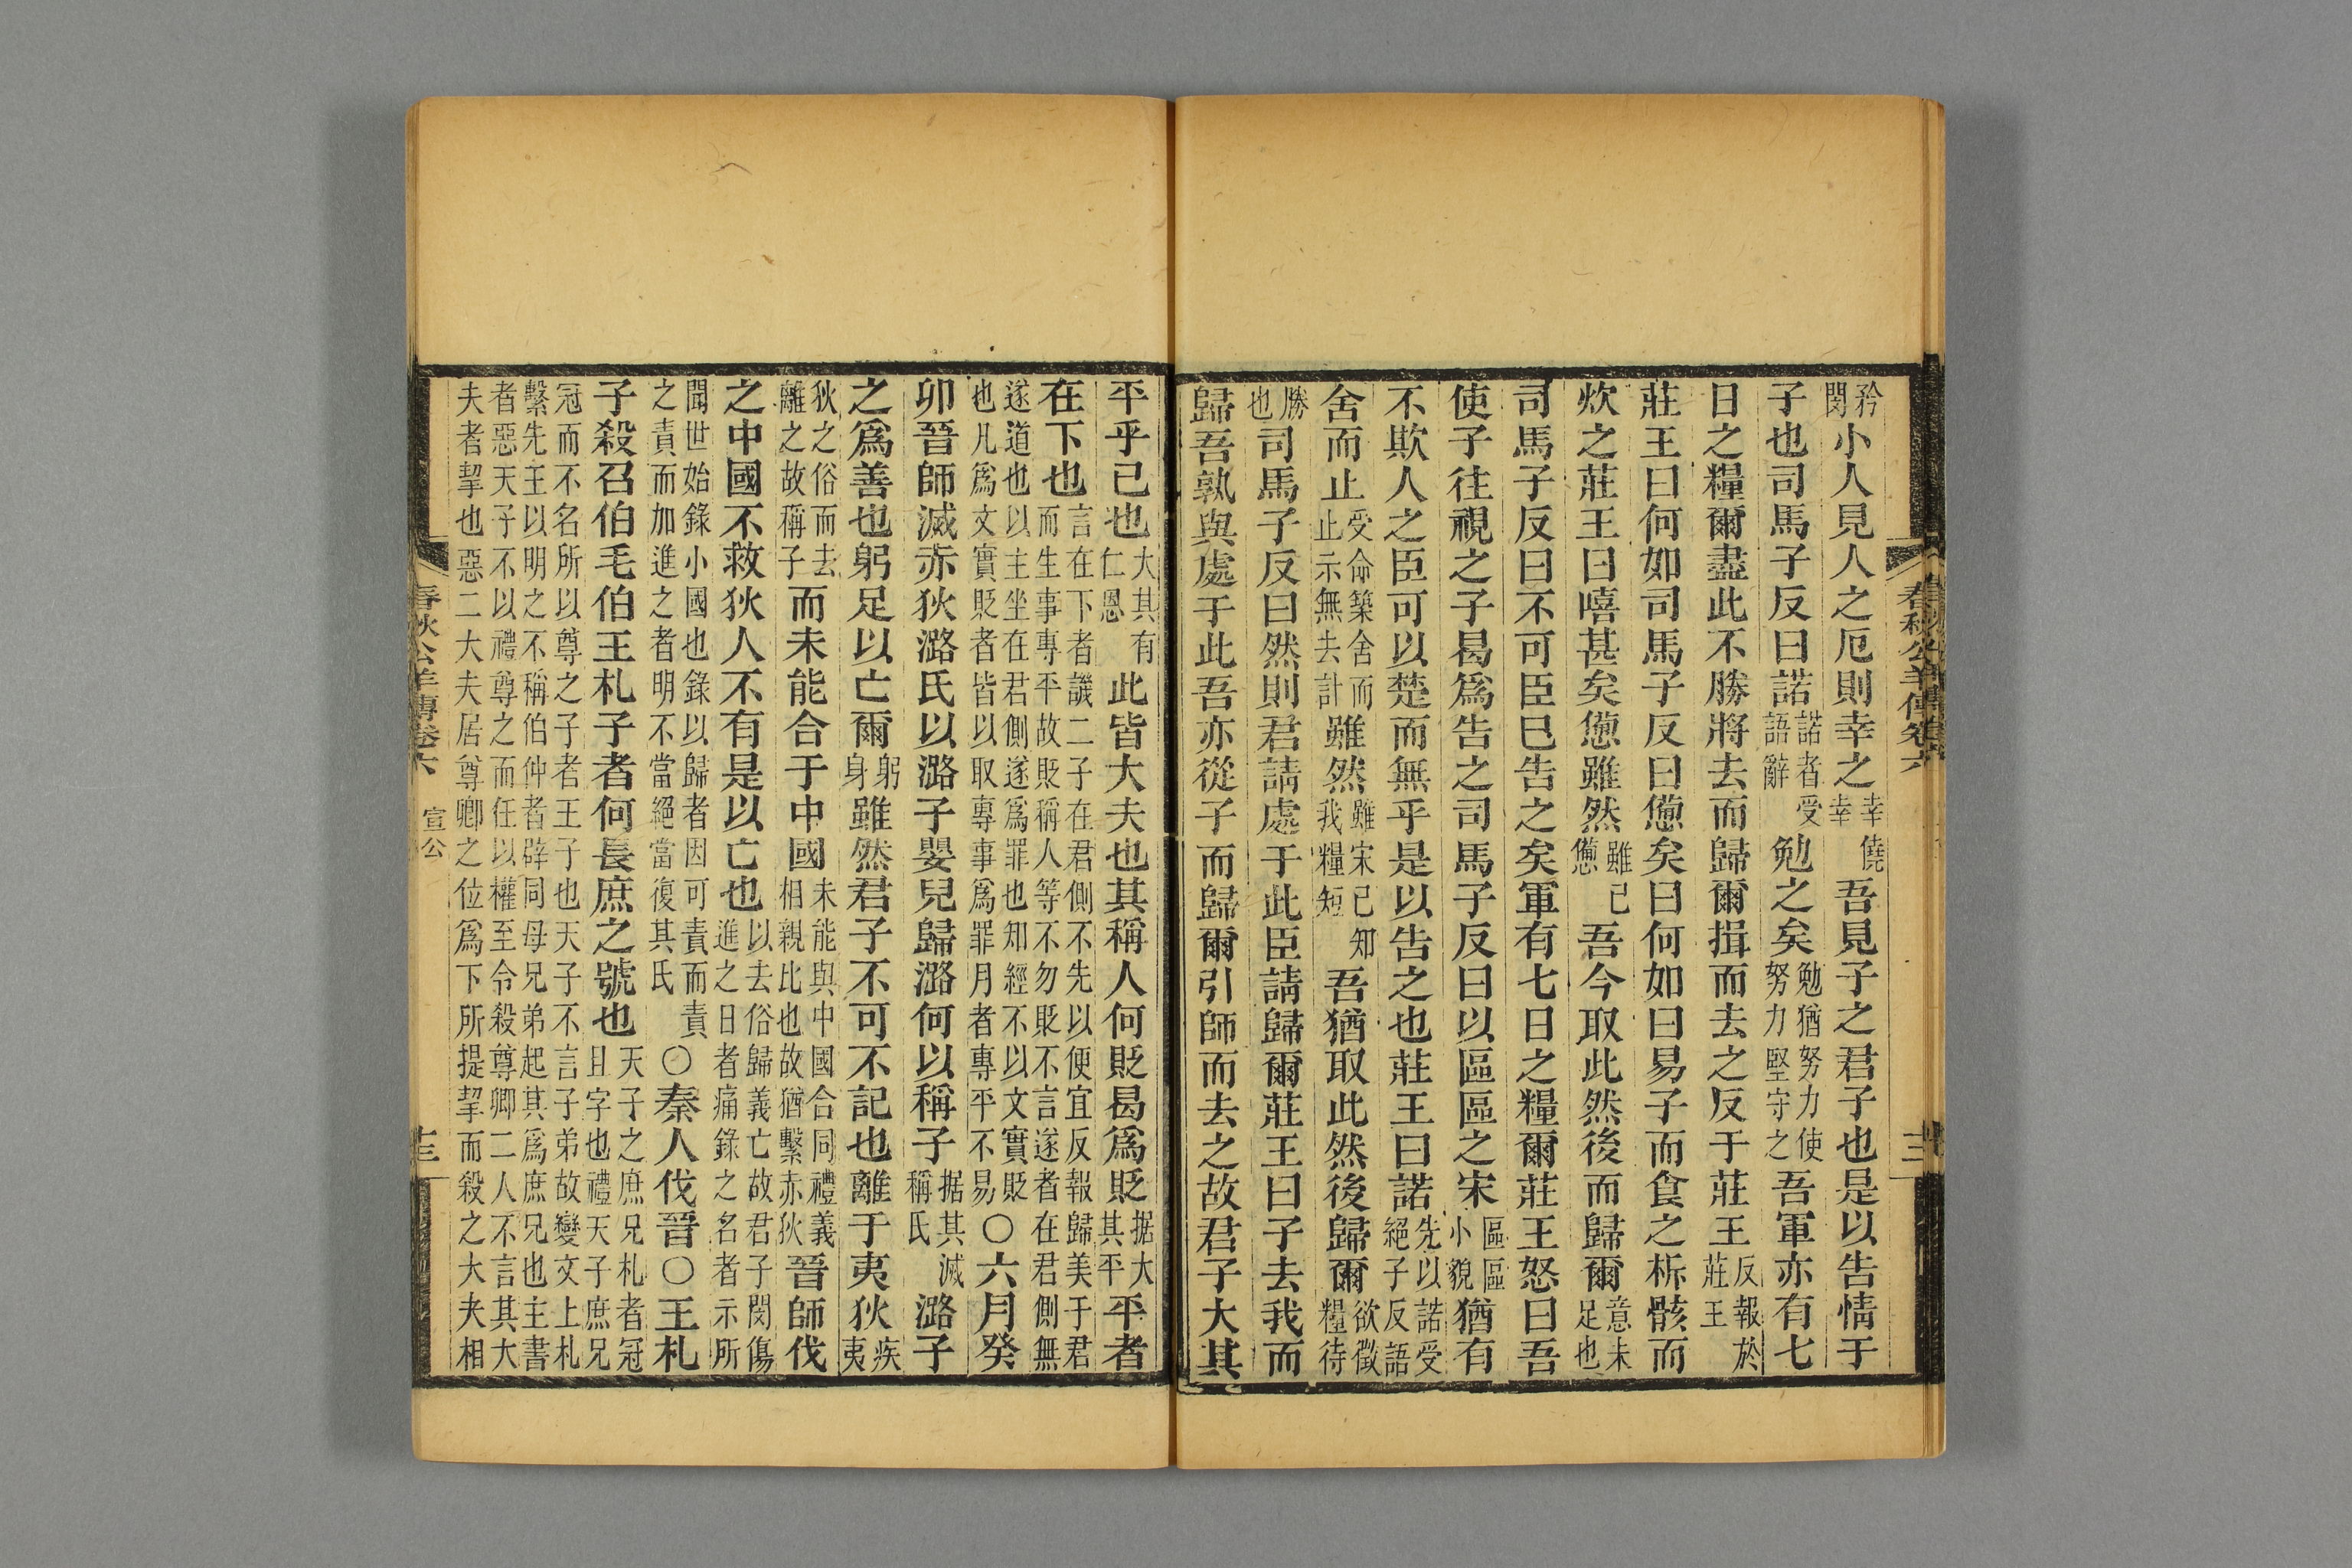 矜閔小人見人之厄則幸之幸僥幸吾見子之君子也是以告情于
子也司馬子反曰諾諾者受語辭勉之矣勉猶努力使努力堅守之吾軍亦有七
日之糧爾盡此不勝將去而歸爾揖而去之反于莊王反報於莊王
莊王曰何如司馬子反曰憊矣曰何如曰易子而食之析骸而
炊之莊王曰嘻甚矣憊雖然雖已憊吾今取此然後而歸爾意未足也
司馬子反曰不可臣巳告之矣軍有七日之糧爾莊王怒曰吾
使子往視之子曷爲告之司馬子反曰以區區之宋區區小貌猶有
不欺人之臣可以楚而無乎是以告之也莊王曰諾先以諾受絕子反語
舍而止受命築舍而止示無去計雖然雖宋已知我糧短吾猶取此然後歸爾欲徵糧待
勝也司馬子反曰然則君請處于此臣請歸爾莊王曰子去我而
歸吾孰與處于此吾亦從子而歸爾引師而去之故君子大其
平乎已也大其有仁恩此皆大夫也其稱人何貶曷爲貶据大其平平者
在下也言在下者譏二子在君側不先以便宜反報歸美于君而生事專平故貶稱人等不勿貶不言遂者在君側無
遂道也以主坐在君側遂爲罪也知經不以文實貶也凡爲文實貶者皆以取專事爲罪月者專平不易〇六月癸
卯晉師滅赤狄潞氏以潞子嬰兒歸潞何以稱子据其滅稱氏潞子
之爲善也躬足以亡爾躬身雖然君子不可不記也離于夷狄疾夷
狄之俗而去離之故稱子而未能合于中國未能與中國合同禮義相親比也故猶繫赤狄晉師伐
之中國不救狄人不有是以亡也以去俗歸義亡故君子閔傷進之日者痛錄之名者示所
聞世始錄小國也錄以歸者因可責而責之責而加進之者明不當絕當復其氏〇秦人伐晉〇王札
子殺召伯毛伯王札子者何長庶之號也天子之庶兄札者冠且字也禮天子庶兄
冠而不名所以尊之子者王子也天子不言子弟故變文上札繫先主以明之不稱伯仲者辟同母兄弟起其爲庶兄也主書
者惡天子不以禮尊之而任以權至令殺尊卿二人不言其大夫者挈也惡二大夫居尊卿之位爲下所提挈而殺之大夫相
春秋公羊傳卷六 宣公 十三